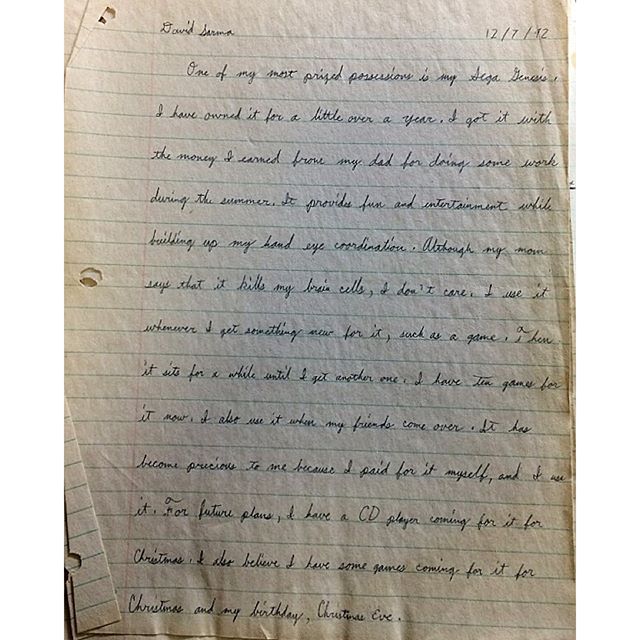 David Sarma 12/7/92
One of my most prized possessions is my Sega Genesis.
I have owned it for a little over a year. I got it with
the money I earned from my dad for doing some work
during the summer. It provides fun and entertainment while
building up my hand eye coordination. Although my mom
says that it kills my brain cells, I don't care. I use it
whenever I get something new for it, such as a game. Then
it sits for a while until I get another one. I have ten games for
it now. I also use it when my friends come over. It has
become precious to me because I paid for it myself, and I use
it. For future plans, I have a CD player coming for it for
Christmas. I also believe I have some games coming for it for
Christmas and my birthday, Christmas Eve.